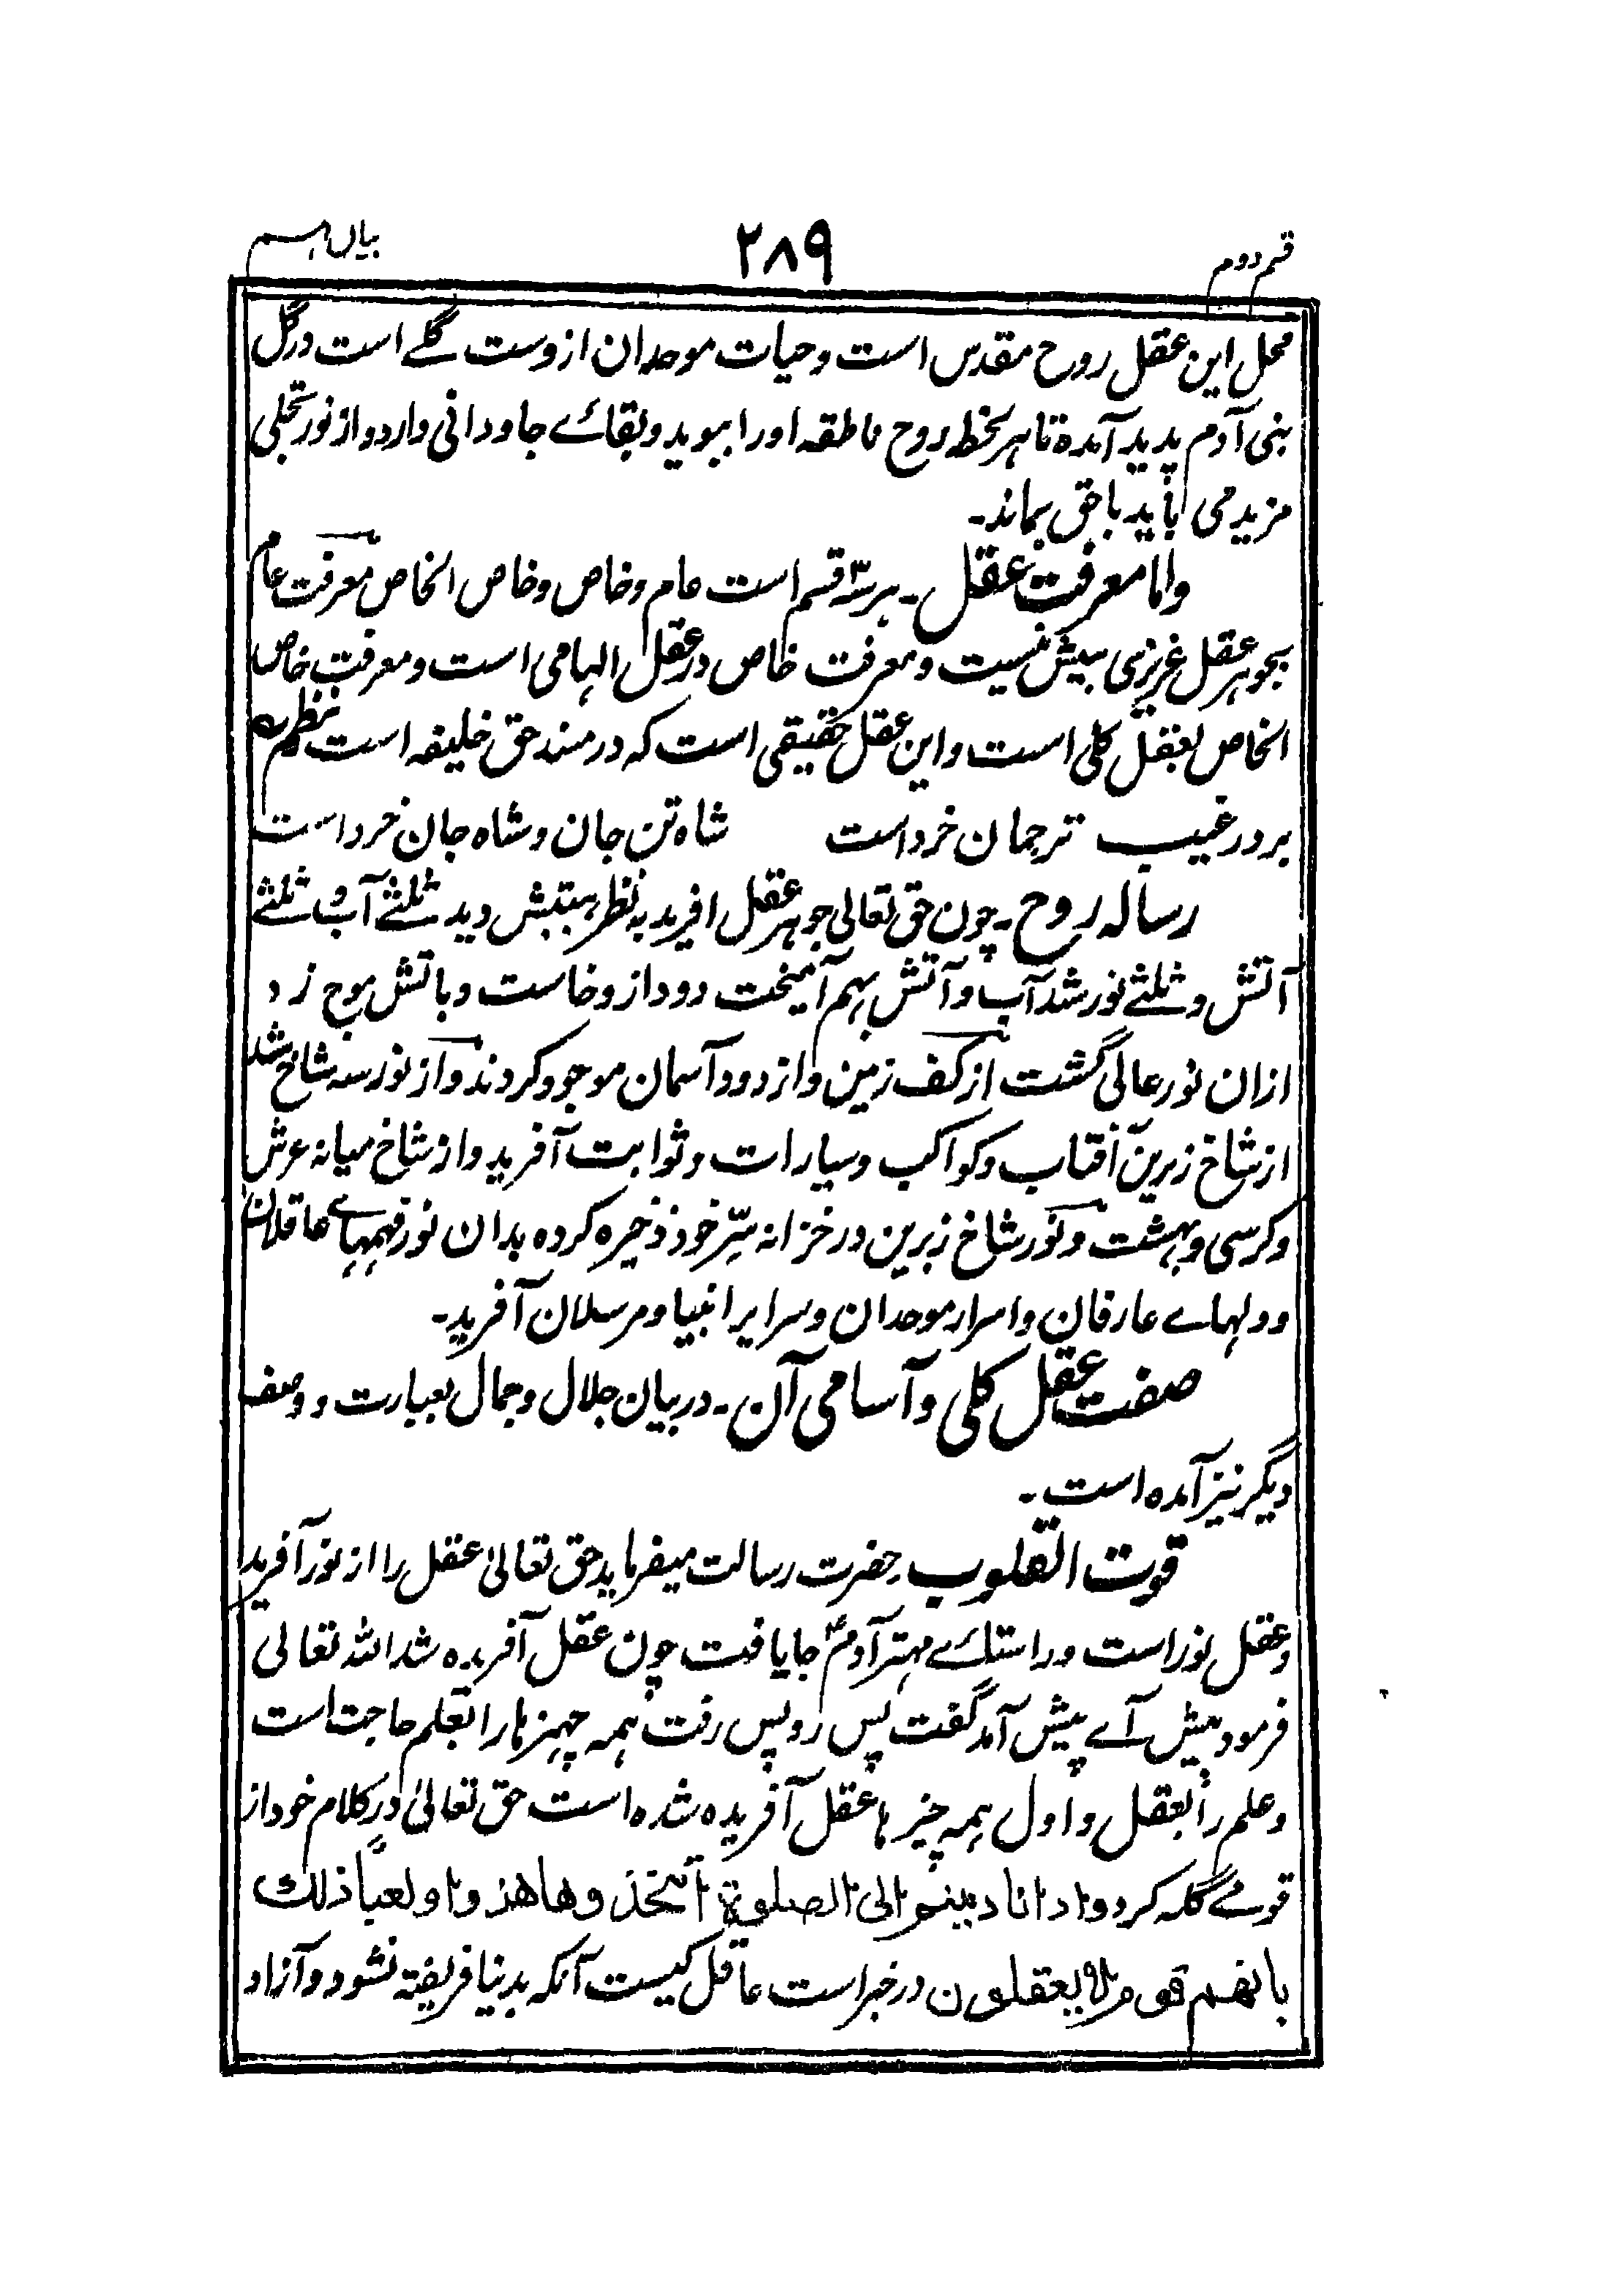 قسم دوم
۲۸۹
بیان
محل این عقل روح مقدس است و حیات موحدان ازوست گلے است در گل
بنی آدم پدید آمده تا هر لحظه روح ناطقه او را ببوید و بقائے جاودانی دارد و از نور تجلی
مزید می یابد با حق بماند۔
واما معرفت عقل۔ بر سه قسم است عام و خاص و خاص الخاص معرفت عام
بجوهر عقل غریزی بیش نیست و معرفت خاص در عقل الهامی است و معرفت خاص
الخاص بعقل کلی است و این عقل حقیقی است که در مسند حق خلیفه است نظم
بر در غیب ترجمان خرد است شاه تن جان و شاه جان خرد است
رساله روح۔ چون حق تعالی جوهر عقل افرید به نظر هیبتش دید ثلثے آب و ثلثے
آتش و ثلثے نور شد آب و آتش بهم آمیخت دود ازو خاست و باتش موج زد
ازان نور عالی گشت از کف زمین و از دود آسمان موجود کردند و از نور سه شاخ شد
از شاخ زیرین آفتاب و کواکب و سیارات و ثوابت آفرید و از شاخ میانه عرش
و کرسی و بهشت و نور شاخ زبرین در خزانه سرّ خود ذخیره کرده بدان نور فهمهاے عاقلان
و دلهاے عارفان و اسرار موحدان و سرایر انبیا و مرسلان آفرید۔
صفت عقل کلی و آسامی آن۔ در بیان جلال و جمال بعبارت و وصف
دیگر نیز آمده است۔
قوت القلوب حضرت رسالت میفرماید حق تعالیٰ عقل را از نور آفرید
و عقل نور است و راستائے مهتر آدم؏ جا یافت چون عقل آفریده شد الله تعالی
فرمود پیش آے پیش آمد گفت پس رو پس رفت همه چیزها را بعلم حاجت است
و علم را بعقل و اول همه چیزها عقل آفریده شده است حق تعالیٰ در کلام خود از
قومے گله کرد واذا نادیتم الی الصلوة اتخذوها هذوا ولعبًا ذلك
بانهم قوم لا یعقلون در خبر است عاقل کیست آنکه بدنیا فریفته نشود و آزاد